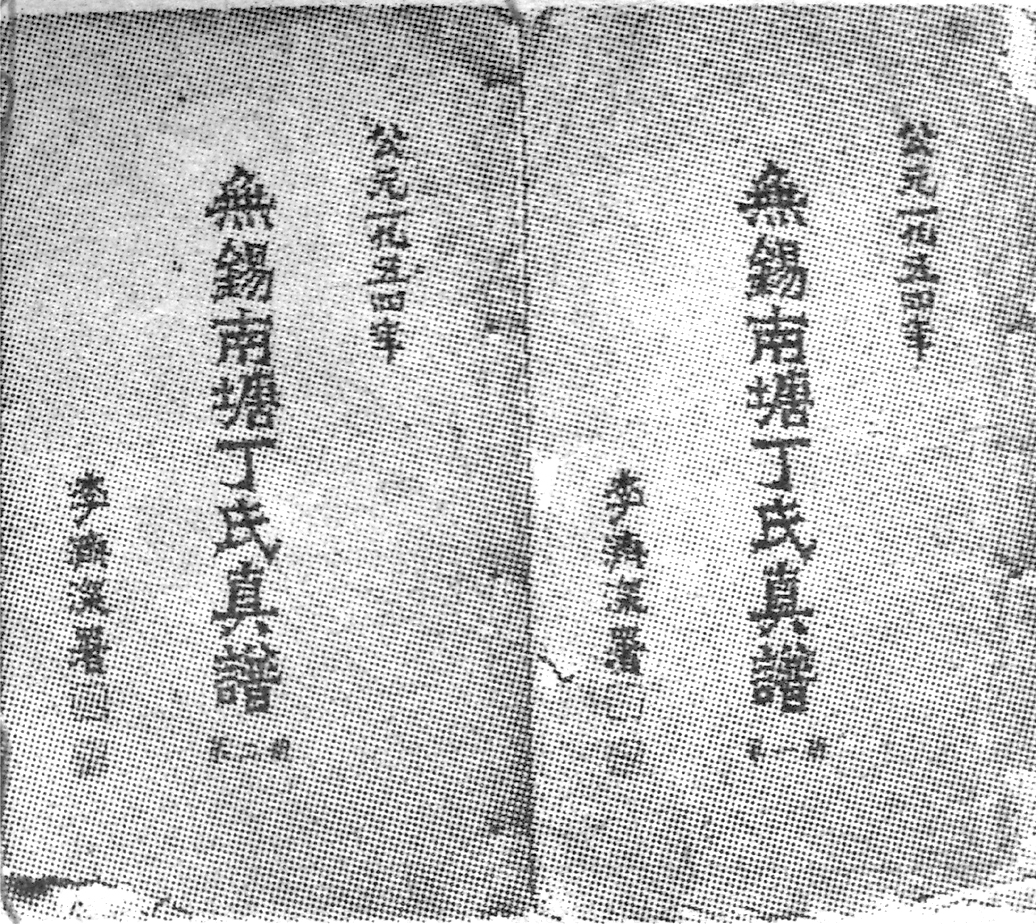 公元一九五四年
無錫南塘丁氏真譜
第一冊
李濟深署
公元一九五四年
無錫南塘丁氏真譜
第二冊
李濟深署